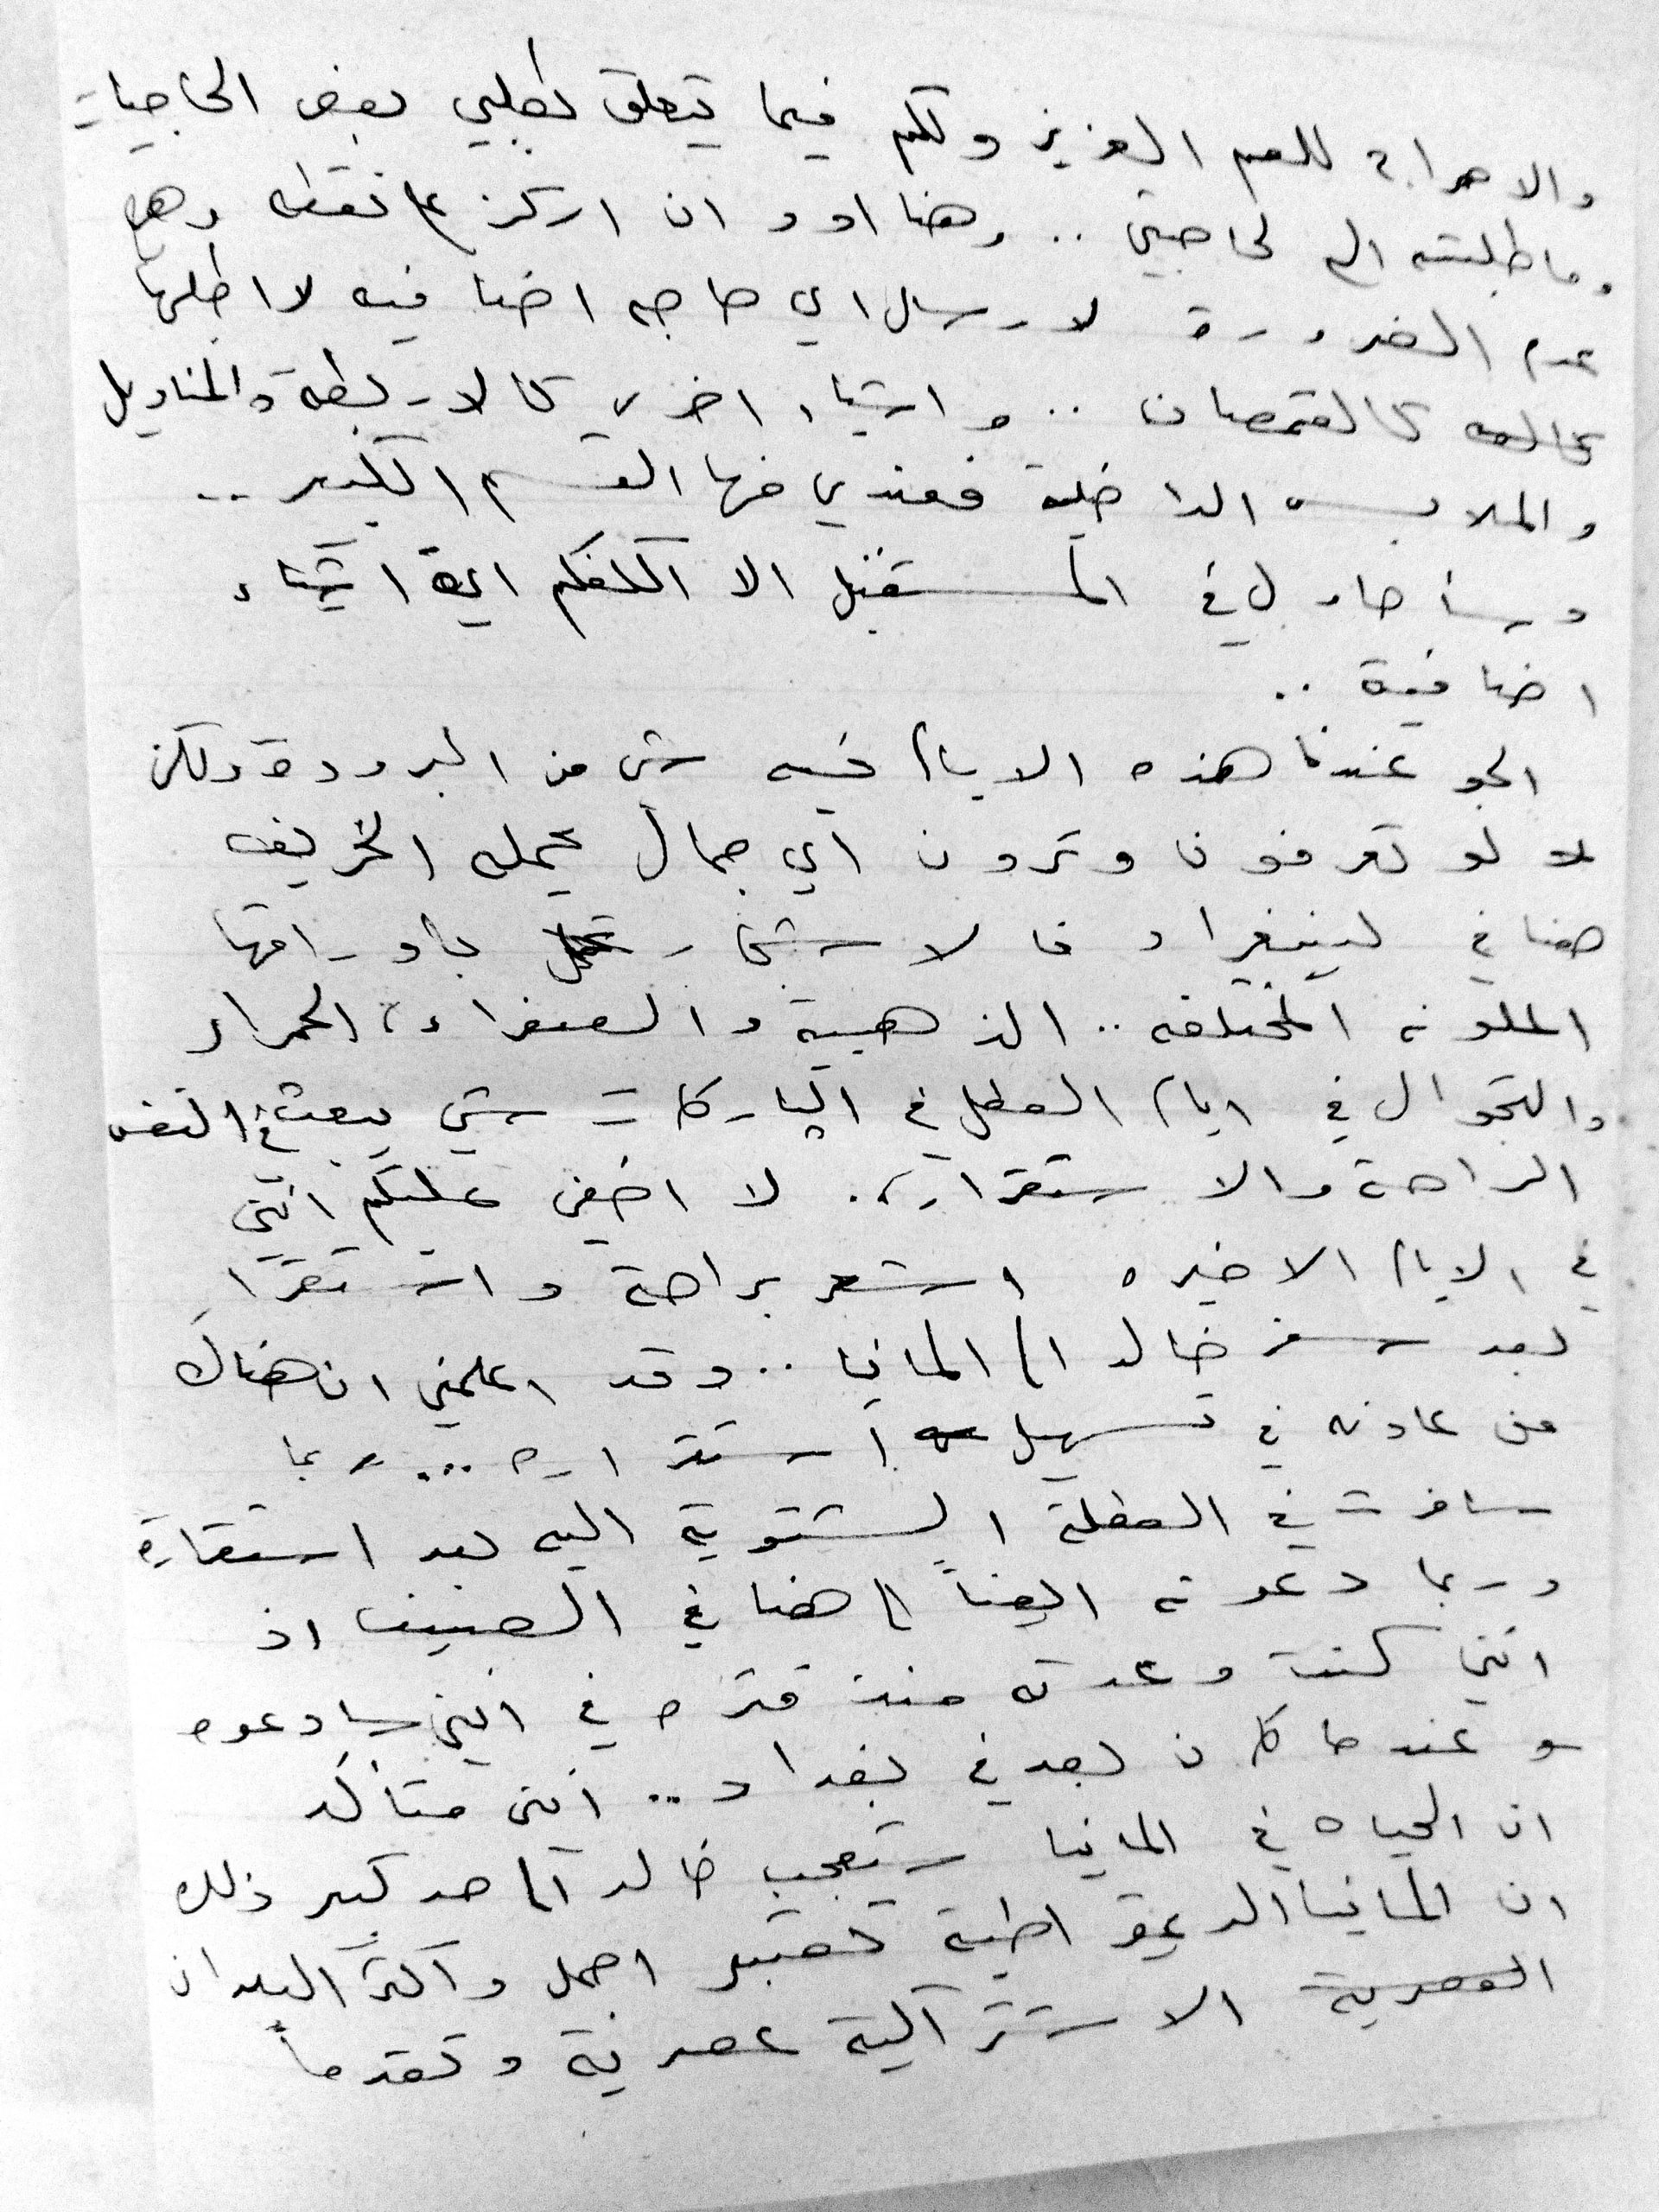 والاحراج للعم العزيز ولكم فيما يتعلق بطلبي بعض الحاجيات
وما طلبته الى لحاجتي .. وهنا اود ان اركز على نقطه وهي
عدم الضرورة لارسال اي حاجه اضافيه لا اطلبها
كالقمصان .. واشياء اخرى كالاربطة والمناديل
والملابس الداخلية فعندي منها القسم الكبير ..
وسأحاول في المستقبل الا اكلفكم اية اشياء
اضافية ..
الجو عندنا هذه الايام فيه شي من البرودة ولكن
لو تعرفون وترون اي جمال يحمله الخريف
هنا في لينينغراد فالاشجار باوراقها
الملونه المختلفه .. الذهبية والصفراء، الحمراء
والتجوال في ايام العطل في الپاركات شي يبعث في النفس
الراحة والاستقرار. لا اخفي عليكم انني
في الايام الاخيره اشعر براحة واستقرار
بعد سفر خالد الى المانيا .. وقد اعلمني ان هناك
من عاونه في تسهيل استقراره ... ربما
سافرت في العطلة الشتوية اليه بعد استقراره
وربما دعوته ايضاً الى هنا في الصيف اذ
انني كنت وعدته منذ فتره في انني سادعوه
عندما كان بعد في بغداد .. انني متأكد
ان الحياه في المانيا ستعجب خالد الى حد كبير ذلك
ان المانيا الديمقراطية تعتبر اجمل واكثر البلدان
الاشتراكية عصرية وتقدماً